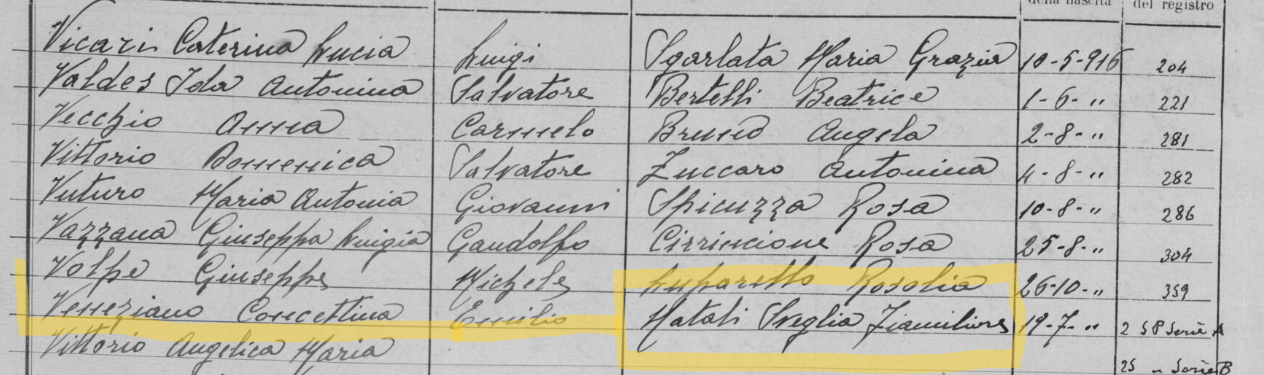 della nascita del registro
Vicari Caterina Lucia Luigi Sgarlata Maria Grazia 10-5-916 204
Valdes Ida Antonina Salvatore Bertelli Beatrice 1-6-" 221
Vecchio Anna Carmelo Bruno Angela 2-8-" 281
Vittorio Domenica Salvatore Zuccaro Antonina 4-8-" 282
Vuturo Maria Antonia Giovanni Spicuzza Rosa 10-8-" 286
Vazzana Giuseppa Luigia Gandolfo Cirrincione Rosa 25-8-" 304
Volpe Giuseppe Michele Luparello Rosolia 26-10-" 359
Veneziano Concettina Emilio Natali 19-7-" 258 Serie A
Vittorio Angelica Maria 25 " Serie B